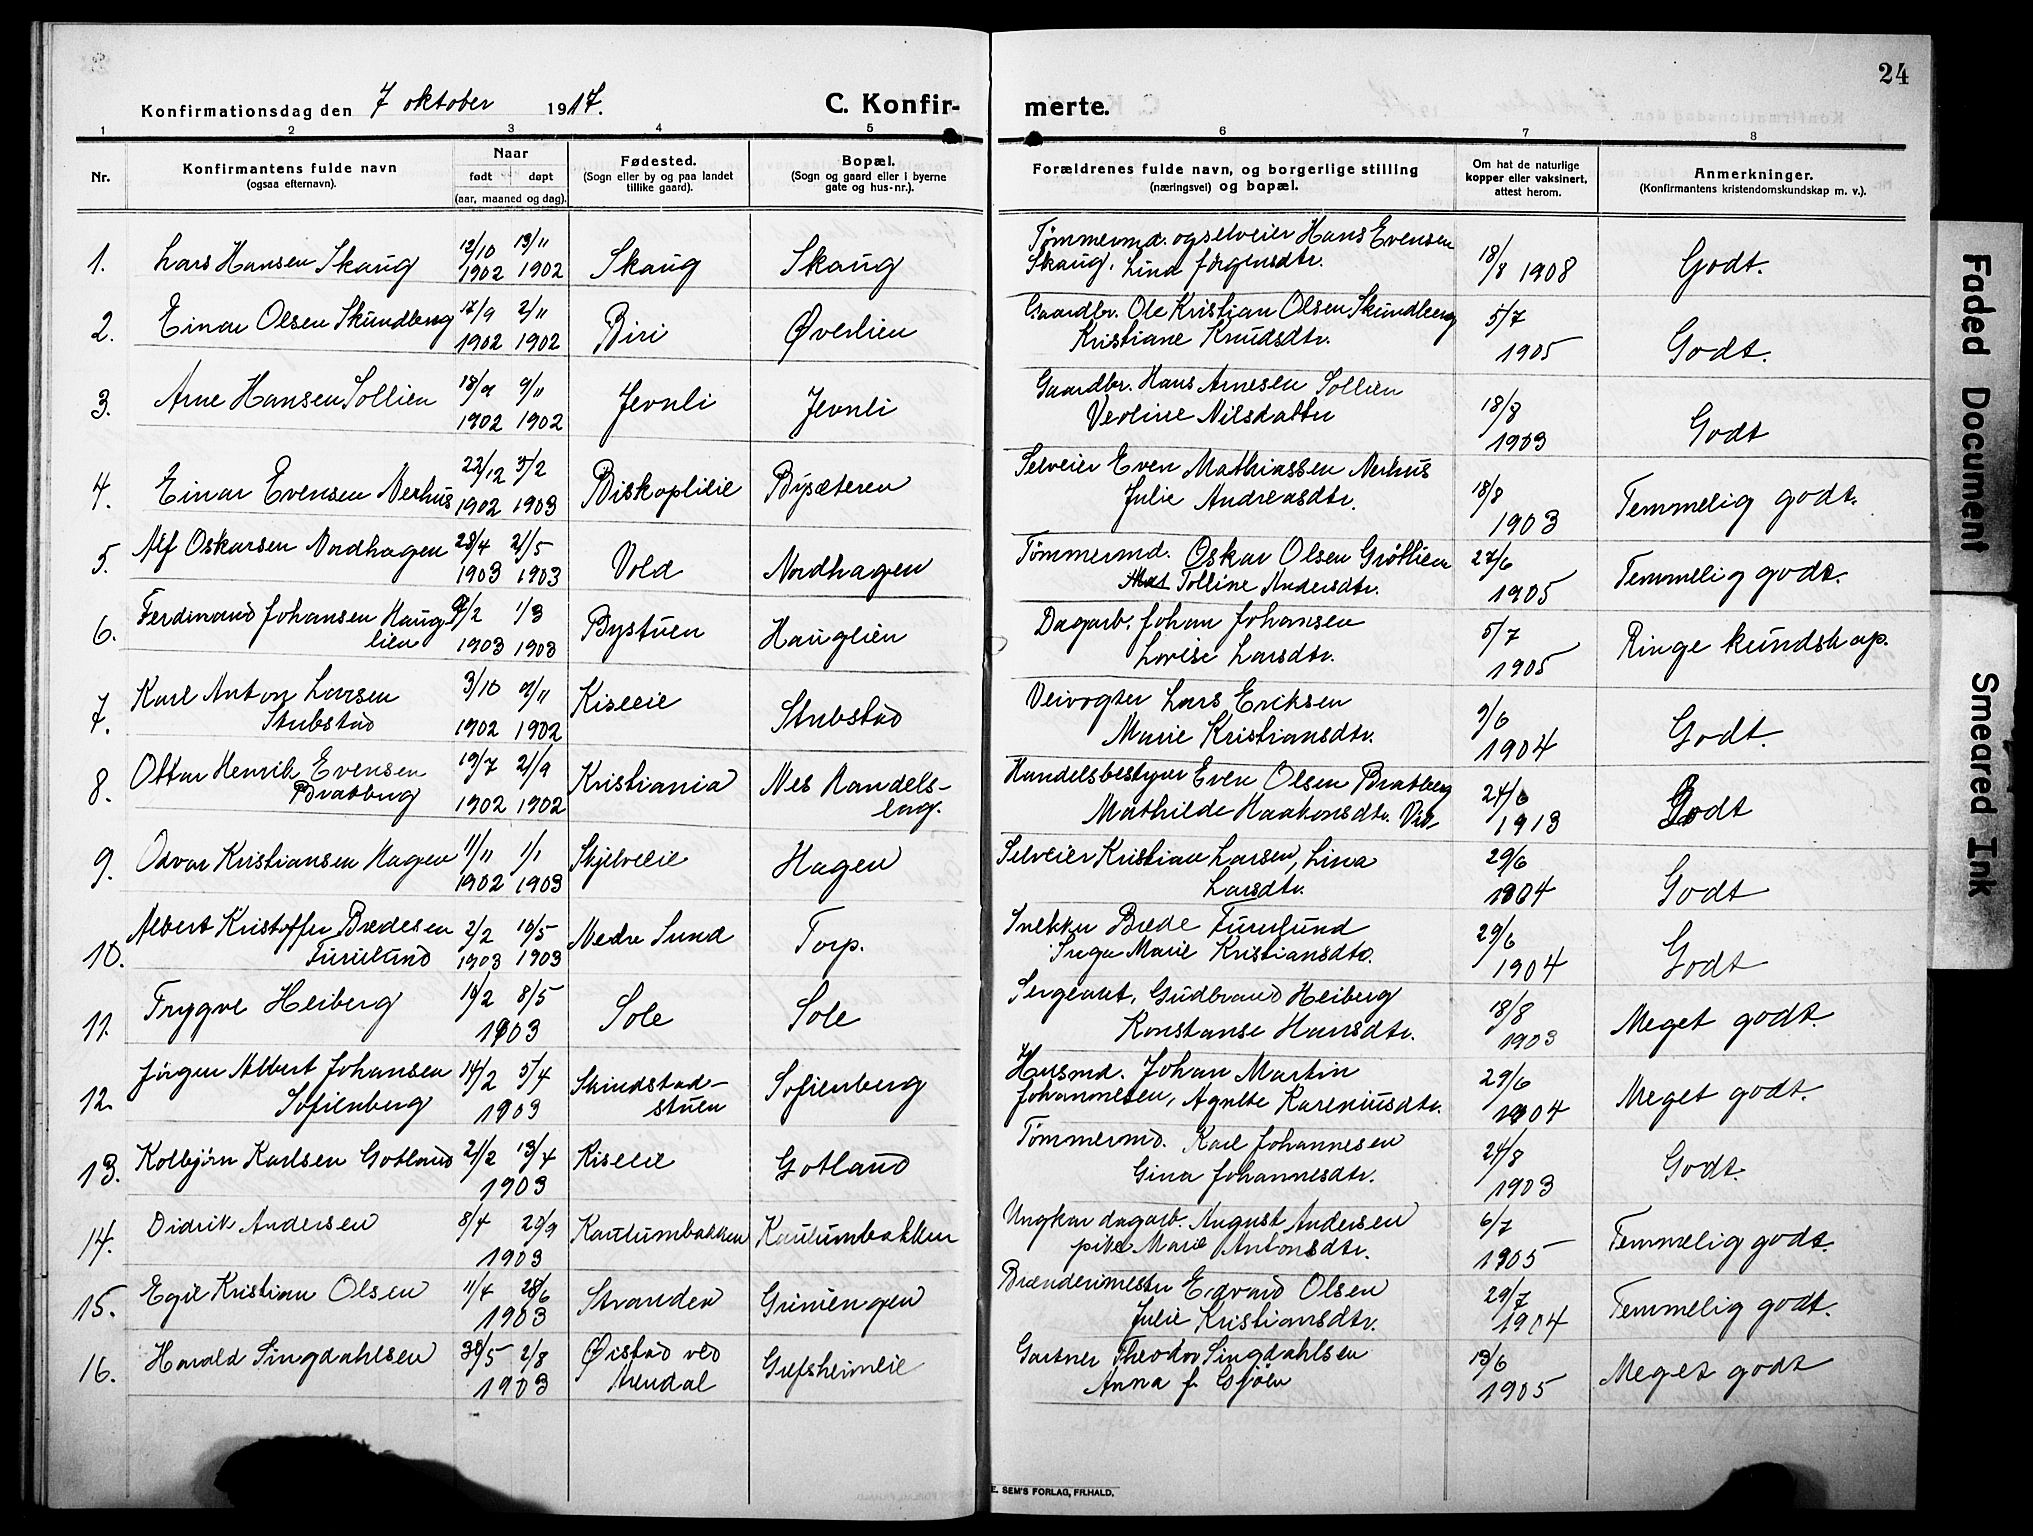 24
Konfirmationsdag den 7 oktober 1917.
C. Konfir-
merte.
1 2 3 4 5 6 7 8
Nr.
Konfirmantens fulde navn
(ogsaa efternavn).
Naar
født døpt
(aar, maaned og dag).
Fødested.
(Sogn eller by og paa landet
tillike gaard).
Bopæl.
(Sogn og gaard eller i byerne
gate og hus-nr.).
Forældrenes fulde navn, og borgerlige stilling
(næringsvei) og bopæl.
Om hat de naturlige
kopper eller vaksinert,
attest herom.
Anmerkninger.
(Konfirmantens kristendomskundskap m. v.).
1. Lars Hansen Skaug 12/10 1902 13/11 1902 Skaug Skaug Tømmermd. og selveier Hans Evensen
Skaug. Lina Jørgensdtr. 18/8 1908 Godt.
2. Einar Olsen Skundberg 17/9 1902 2/11 1902 Biri Øverlien Gaardbr. Ole Kristian Olsen Skundberg
Kristiane Knudsdtr. 5/7 1905 Godt.
3. Arne Hansen Sollien 18/9 1902 9/11 1902 Jevnli Jevnli Gaardbr. Hans Arnesen Sollien
Verline Nilsdatter 18/8 1903 Godt
4. Einar Evensen Nerhus 22/12 1902 5/2 1903 Biskoplieie Bysæteren Selveier Even Mathiassen Nerhus
Julie Andreasdtr. 18/8 1903 Temmelig godt.
5. Alf Oskarsen Nordhagen 28/4 1903 21/5 1903 Vold Nordhagen Tømmermd. Oskar Olsen Grøtlien
Tolline Andersdtr. 27/6 1905 Temmelig godt.
6. Ferdinand Johansen Haug
lien 1903 1/3 1903 Bystuen Hauglien Dagarb. Johan Johansen
Lovise Larsdtr. 5/7 1905 Ringe kundskap.
7. Karl Anton Larsen
Stubstad 3/10 1902 9/11 1902 Kiseeie Stubstad Veivogter Lars Eriksen
Marie Kristiansdtr. 9/6 1904 Godt.
8. Ottar Henrik Evensen
Bratberg 19/7 1902 21/9 1902 Kristiania Nes Handels-
lag. Handelsbestyrer Even Olsen Bratberg
Mathilde Haakonsdtr. 24/6 1913 Godt
9. Odvar Kristiansen Hagen 11/11 1902 1/1 1903 Skjelveeie Hagen Selveier Kristian Larsen, Lina
Larsdtr. 29/6 1904 Godt
10. Albert Kristoffer Bredesen
Furulund 2/2 1903 10/5 1903 Nedre Sund Torp. Snekker Brede Furulund
Inga Marie Kristiansdtr. 29/6 1904 Godt
11. Trygve Heiberg 10/2 8/5 1903 Sole Sole Sergeant, Gudbrand Heiberg
Konstanse Hansdtr. 18/8 1903 Meget godt.
12. Jørgen Albert Johansen
Sofienberg 14/2 5/4 1903 Skindstad-
stuen Sofienberg Husmd. Johan Martin
Johannesen, Agnete Kareniusdtr. 29/6 1904 Meget godt.
13. Kolbjørn Karlsen Gotland 21/2 13/4 1903 Kiseeie Gotland Tømmermd. Karl Johannesen
Gina Johannesdtr. 24/8 1903 Godt.
14. Didrik Andersen 8/4 20/9 1903 Kaulumbakken Kaulumbakken Ungkar dagarb. August Andersen
pike Marie Antonsdtr. 6/7 1905 Temmelig godt.
15. Egil Kristian Olsen 11/4 28/6 1903 Stranden Griniengen Brænderimester Edvard Olsen
Julie Kristiansdtr. 29/7 1904 Temmelig godt.
16. Harald Singdahlsen 30/5 2/8 1903 Øistad ved
Arendal Grefsheimeie Gartner Theodor Singdahlsen
Anna f. Gjølu 13/6 1905 Meget godt
E. SEM'S FORLAG, FR.HALD.
Faded Document
Smeared Ink